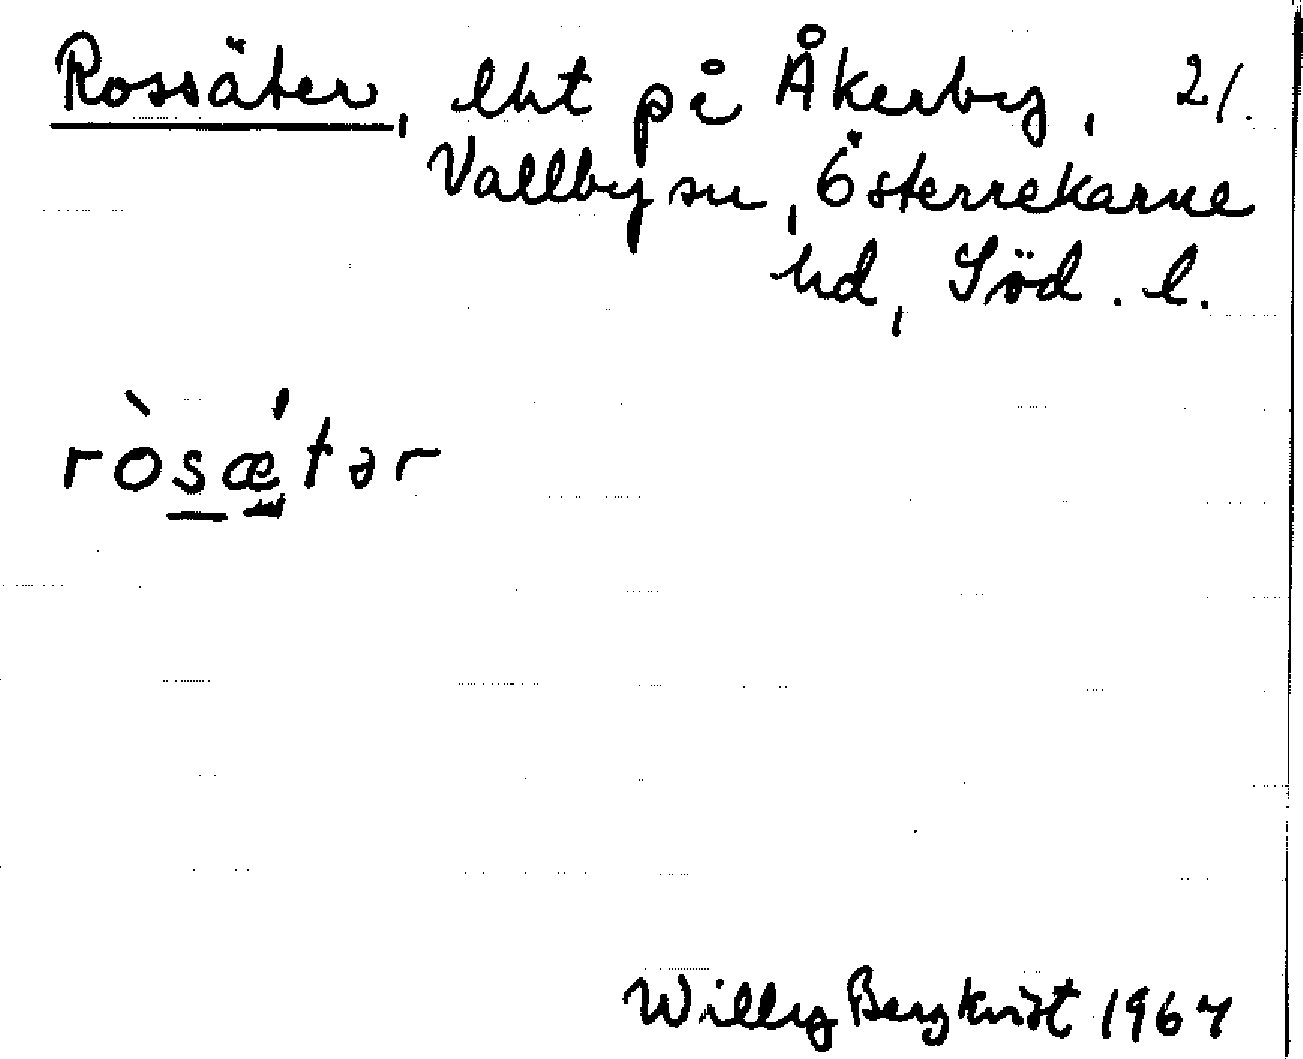 Rossäter, lht på Åkerby, 21.
Vallby sn, Österrekarne
hd, Söd. l.
ròsǽtər
Willy Bergkvist 1967